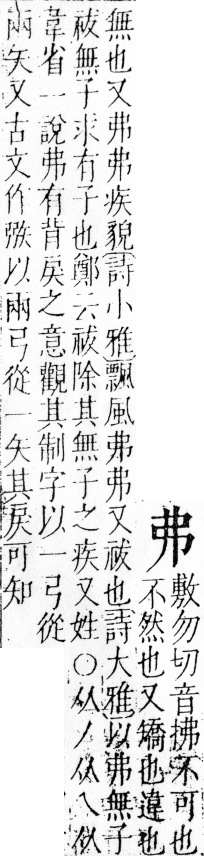 弗
敷勿切音拂不可也
不然也又矯也違也
無也又弗弗疾貌詩小雅飄風弗弗又祓也詩大雅以弗無子
祓無子求有子也鄭云祓除其無子之疾又姓○从丿从乀从
韋省一說弗有背戾之意觀其制字以一弓從
兩矢又古文作以兩弓從一矢其戾可知